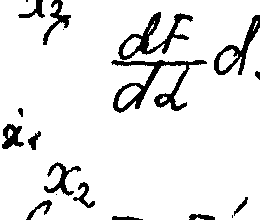 x₂
dF
dα d.
x₁
x₂